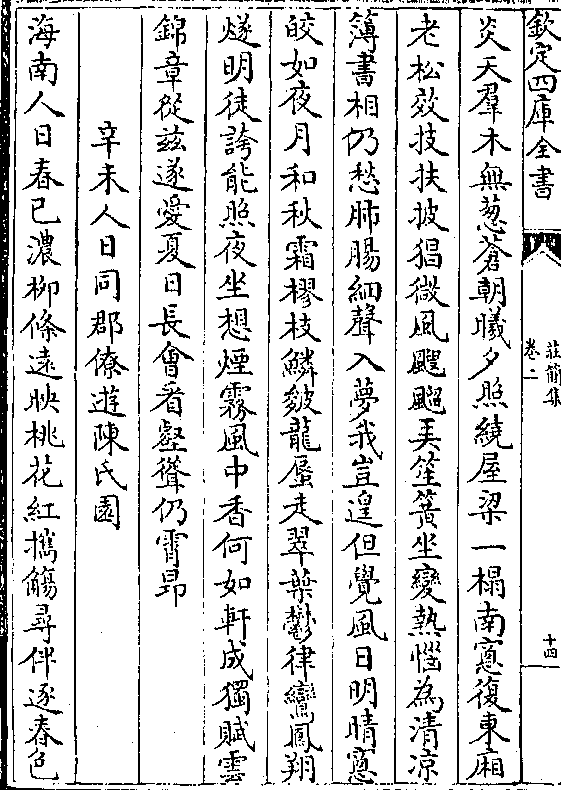 欽定四庫全書
莊簡集
卷二
十四
炎天羣木無葱蒼朝曦夕照繞屋梁一榻南窻復東廂
老松效技扶披猖微風颼飀美笙簧坐變熱惱為清凉
簿書相仍愁肺腸細聲入夢我豈遑但覺風日明晴窻
皎如夜月和秋霜樛枝鱗皴龍蜃走翠葉鬱律鸞鳳翔
燧明徒誇能照夜坐想煙霧風中香何如軒成獨賦雲
錦章從兹遂愛夏日長會看壑聳仍霄昂
辛未人日同郡僚遊陳氏園
海南人日春已濃柳條遠映桃花紅攜觴尋伴逐春色